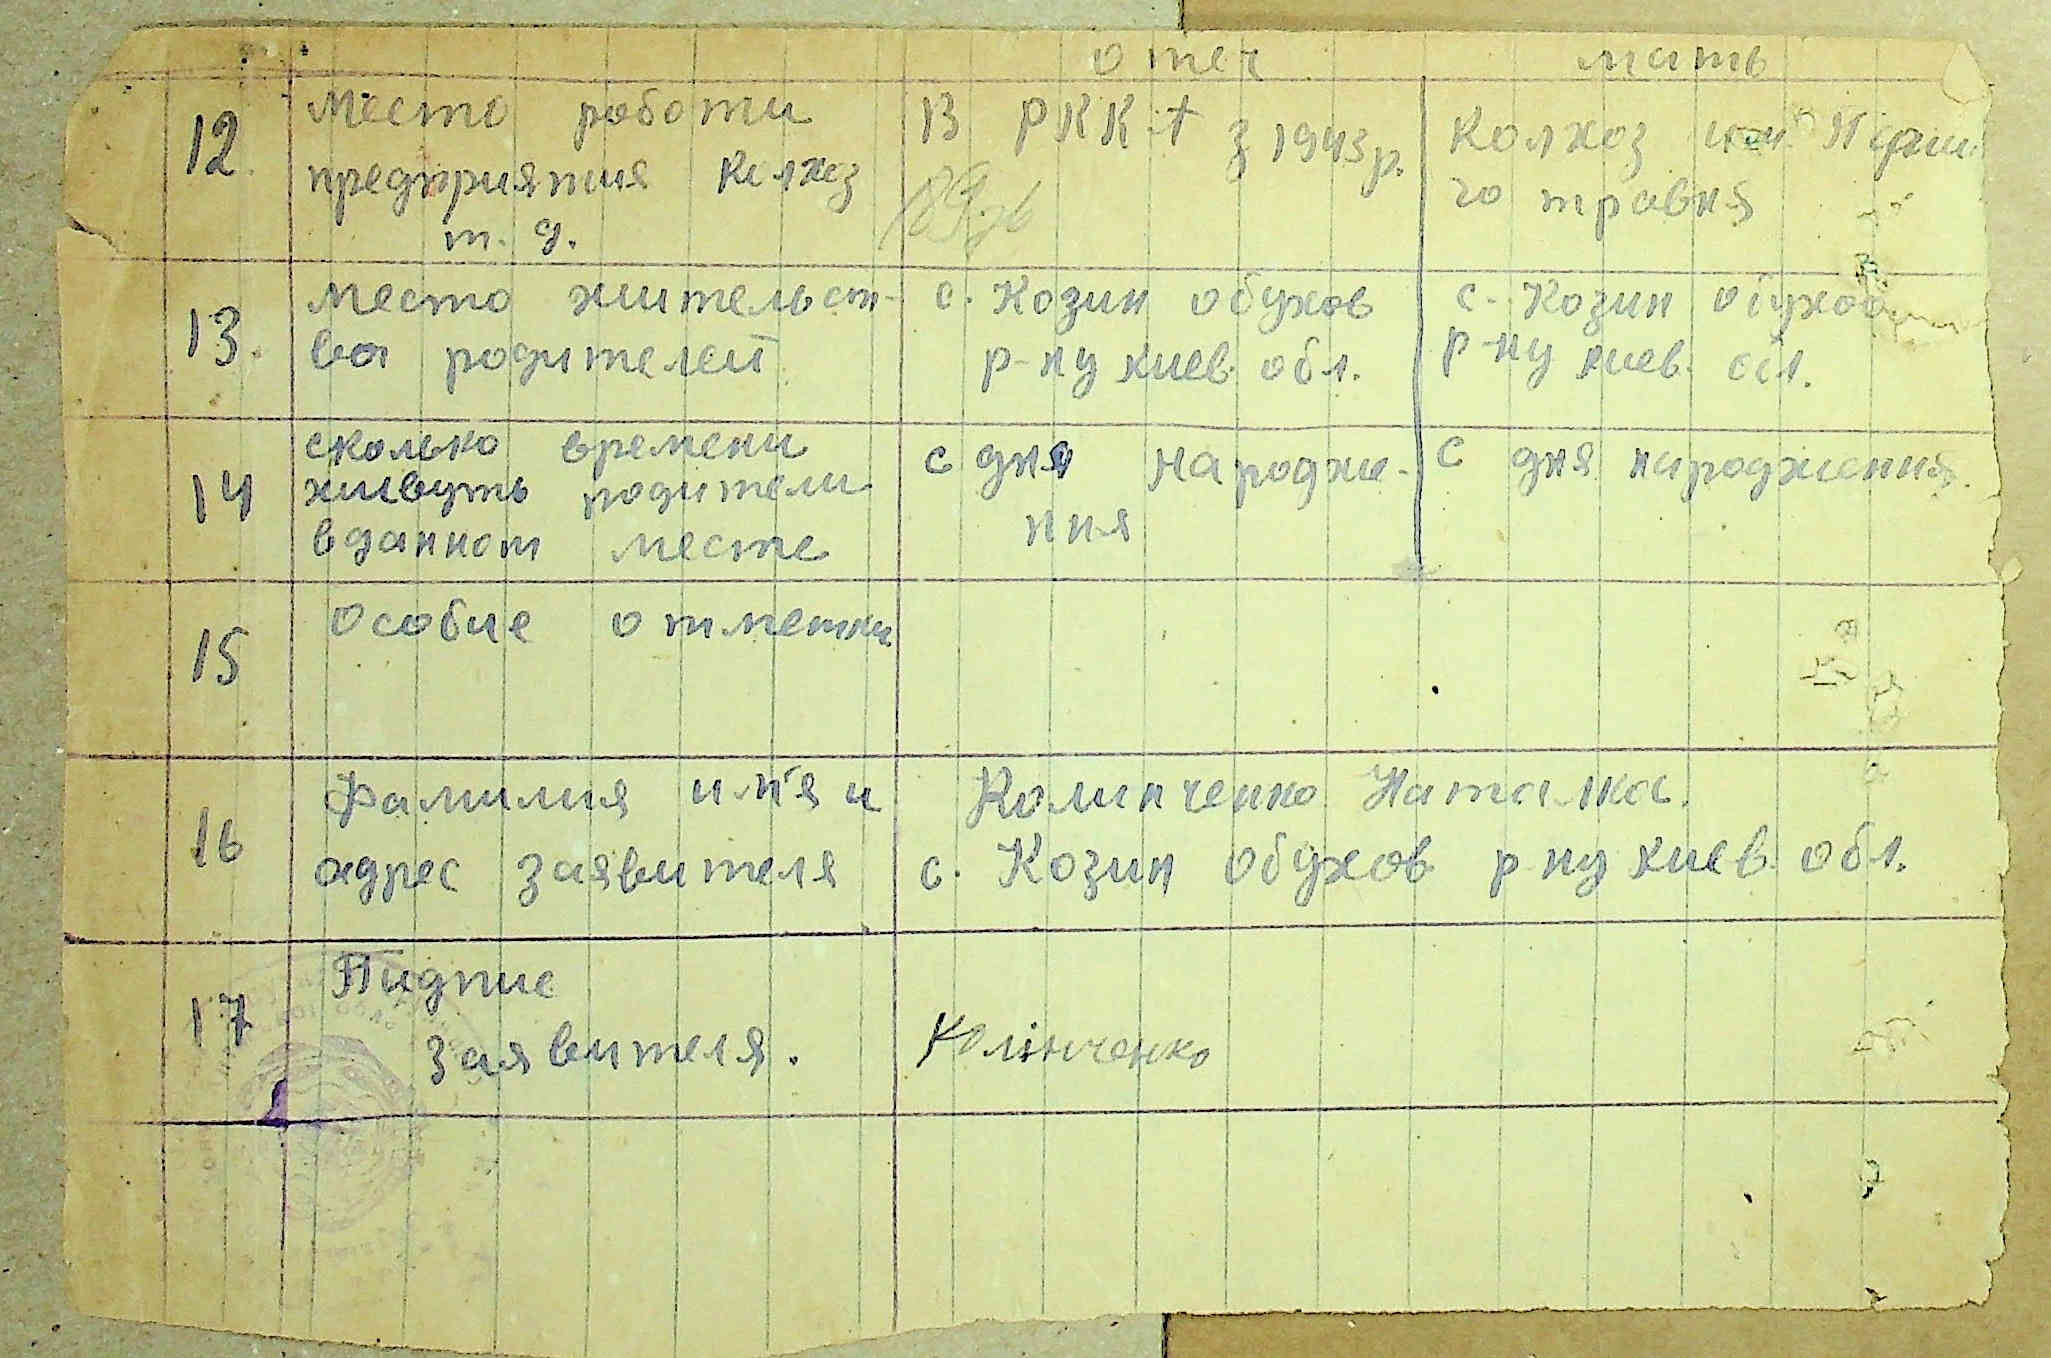 отец мать
12. Место роботи В РККА з 1943 р. Колхоз им. Перши
предприятия колхоз го травня
т. д.
13. Место жительст- с. Козин обухов с. Козин обухов
ва родителей р-ну киев. обл. р-ну киев. обл.
14 сколько времени с дня народже- с дня народження
живуть родители ння
в данном месте
15 Особие отметки
16 Фамилия им'я и Колинченко Наталка.
адрес заявителя с. Козин обухов р-ну киев. обл.
17 Пидпис
заявителя. Колінченко